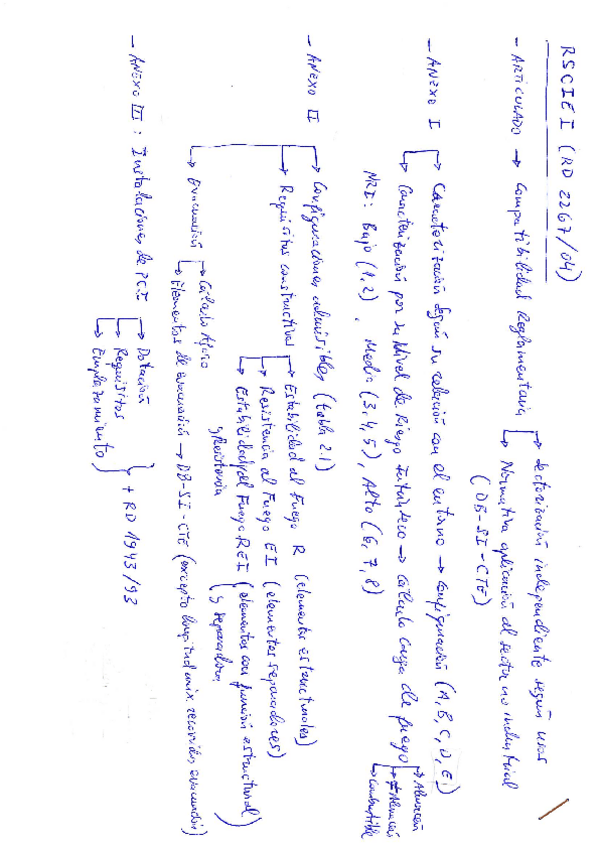 RSCIEI (RD 2267/04)
- ARTICULADO → Compatibilidad Reglamentaria
→ Sectorización independiente según usos
→ Normativa aplicación al sector no industrial
(DB-SI-CTE)
- ANEXO I
→ Caracterización según su relación con el entorno → Configuración (A, B, C, D, E)
→ Caracterización por su Nivel de Riesgo Intrínseco → Cálculo carga de fuego
→ Almacén
→ ≠ Almacén
→ Combustible
NRI: Bajo (1,2), Medio (3,4,5), Alto (6,7,8)
- ANEXO II
→ Configuraciones admisibles (tabla 2.1)
→ Requisitos constructivos
→ Estabilidad al Fuego R (elementos estructurales)
→ Resistencia al Fuego EI (elementos separadores)
→ Estabilidad al Fuego REI (elementos con función estructural)
y Resistencia
y separadora
→ Evacuación
→ Cálculo Aforo
→ Elementos de evacuación → DB-SI-CTE (excepto longitud máx. recorridos evacuación)
- ANEXO III: Instalaciones de PCI
→ Dotación
→ Requisitos
→ Emplazamiento
+ RD 1943/93